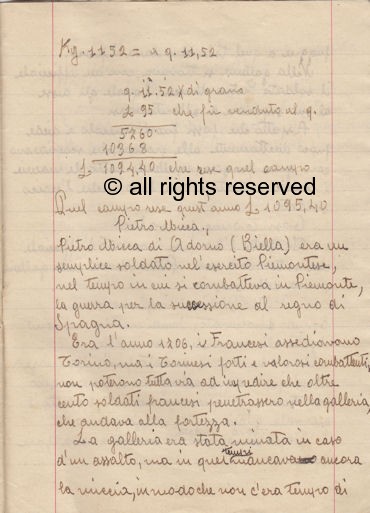 Kg. 1152 = a q. 11,52
q. 11.52 x di grano
£ 95 che fu venduto al q.
5260
10368
£ 1094,40 che rese quel campo
© all rights reserved
Quel campo rese quest'anno £ 1095,40
Pietro Micca.
Pietro Micca di Adorno (Biella) era un
semplice soldato nel'esercito Piemontese,
nel tempo in cui si combatteva in Piemonte,
la guerra per la successione al regno di
Spagna.
Era l'anno 1706, i Francesi assediavano
Torino, ma i Torinesi forti e valorosi combattenti,
non poterono tuttavia ad impedire che oltre
cento soldati francesi penetrassero nella galleria,
che andava alla fortezza.
La galleria era stata minata in caso
d'un assalto, ma in quel mancava ancora
la miccia, in modo che non c'era tempo di